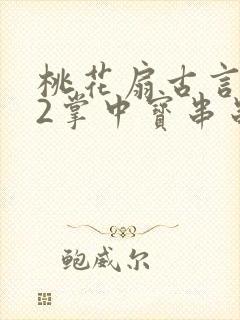 桃花扇古言
2掌中寶串
鲍威尔